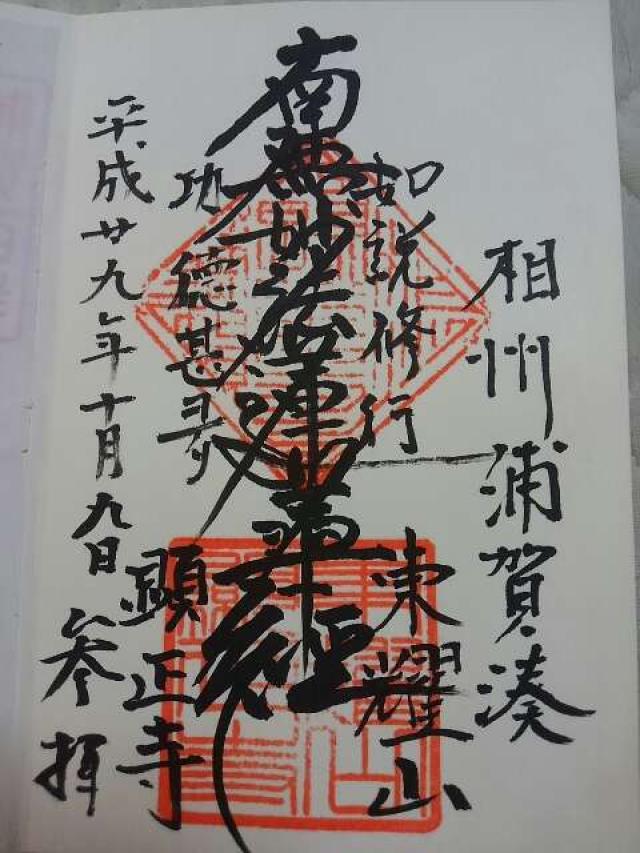 相州浦賀湊
東耀山
如説修行
南無妙法蓮華経
功徳甚多
顕正寺
平成廿九年十月九日 参拝